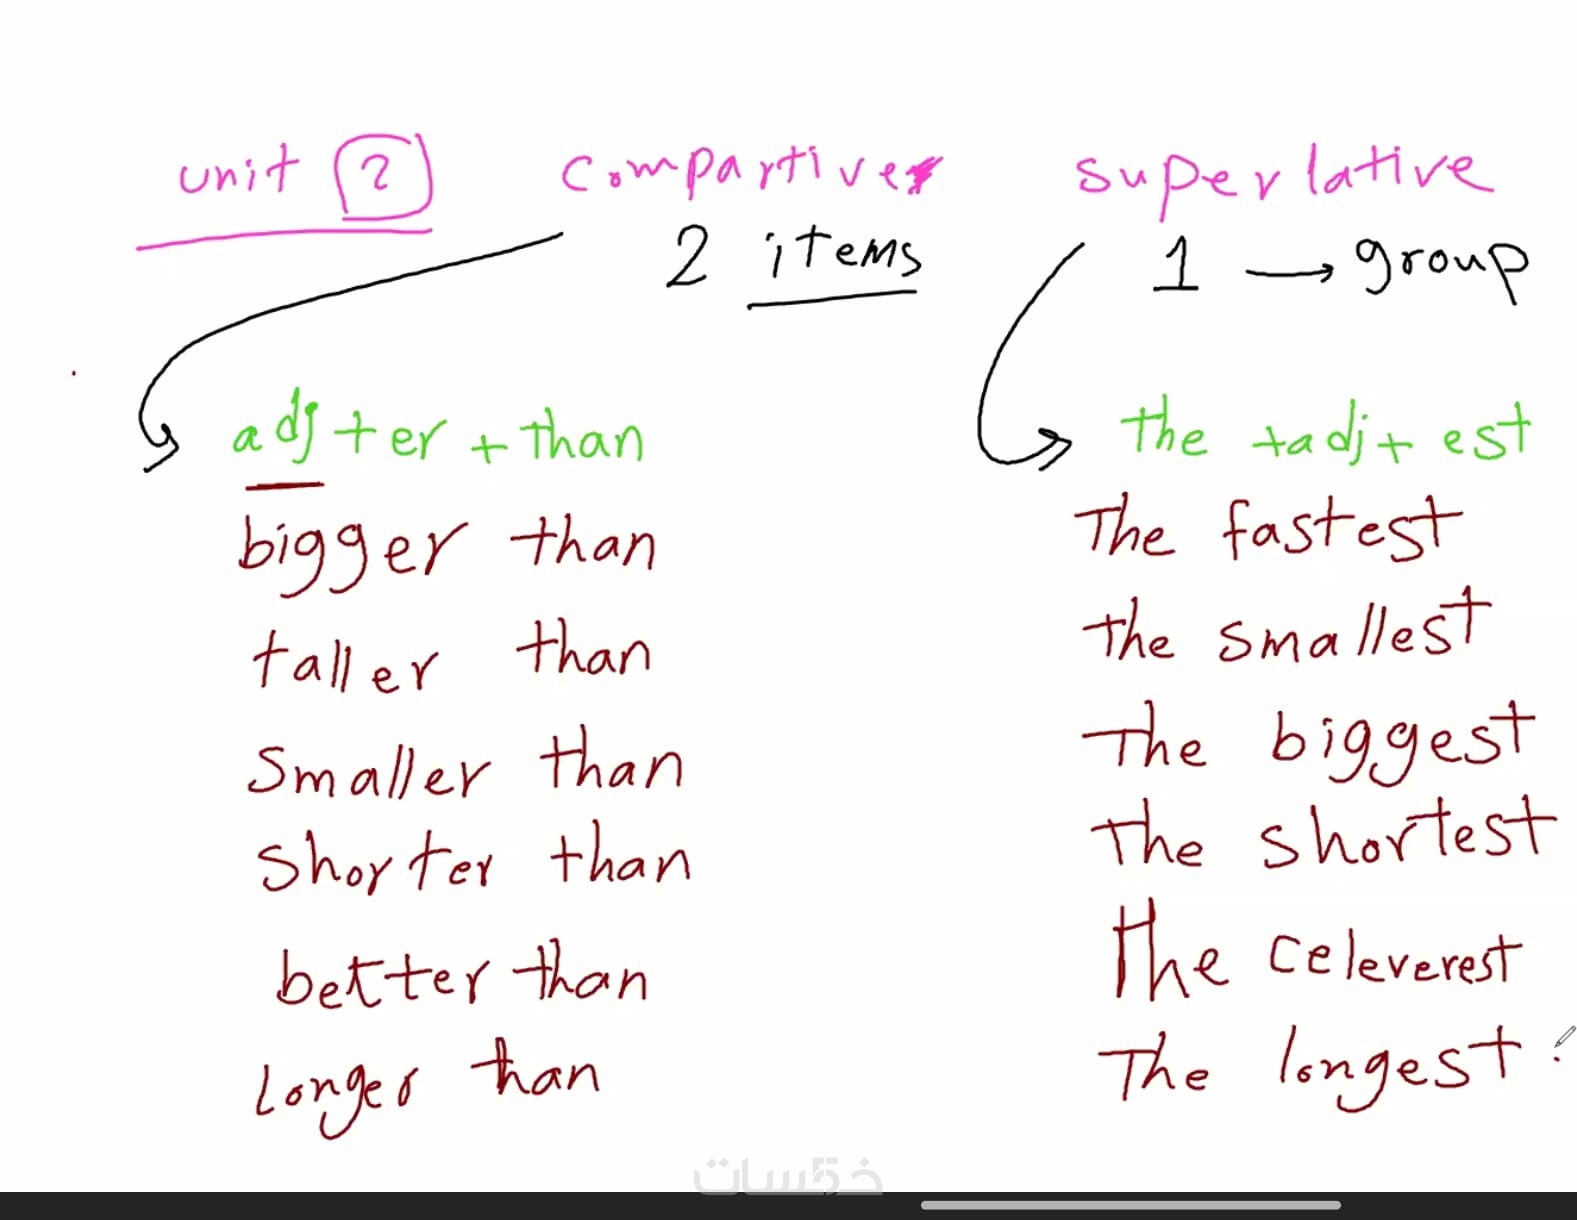 unit 2 compartive superlative
2 items 1 → group
adj + er + than the + adj + est
bigger than The fastest
taller than the smallest
smaller than The biggest
shorter than The shortest
better than The celeverest
Longer than The longest
خمسات